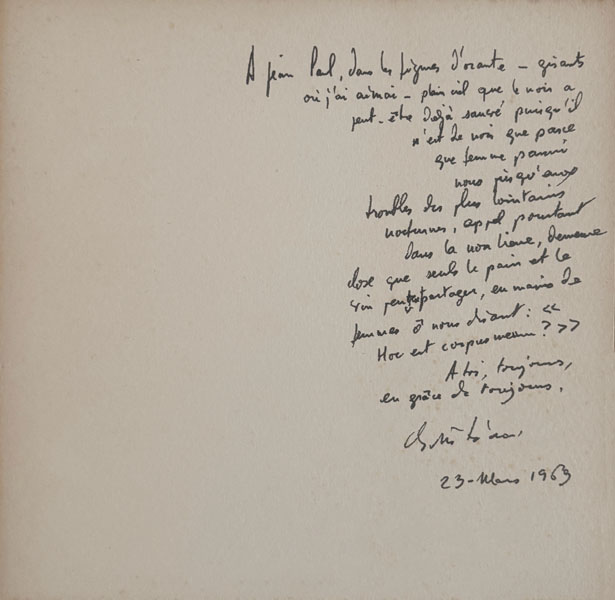 A Jean Paul, dans les d'orante – gisants
où j'ai aimai – plain ciel que le noir a
peut-être déjà sancré puisqu'il
n'est de noir que parce
que femme parmi
nous jusqu'aux
troubles des plus lointains
nocturnes, appel pourtant
dans la non lieue, demeure
close que seuls le pain et le
vin partager, en mains de
femmes ô nous disant : «
Hoc est corpus meum ? »
A toi, toujours,
en grâce de toujours.
23 - Mars 1963